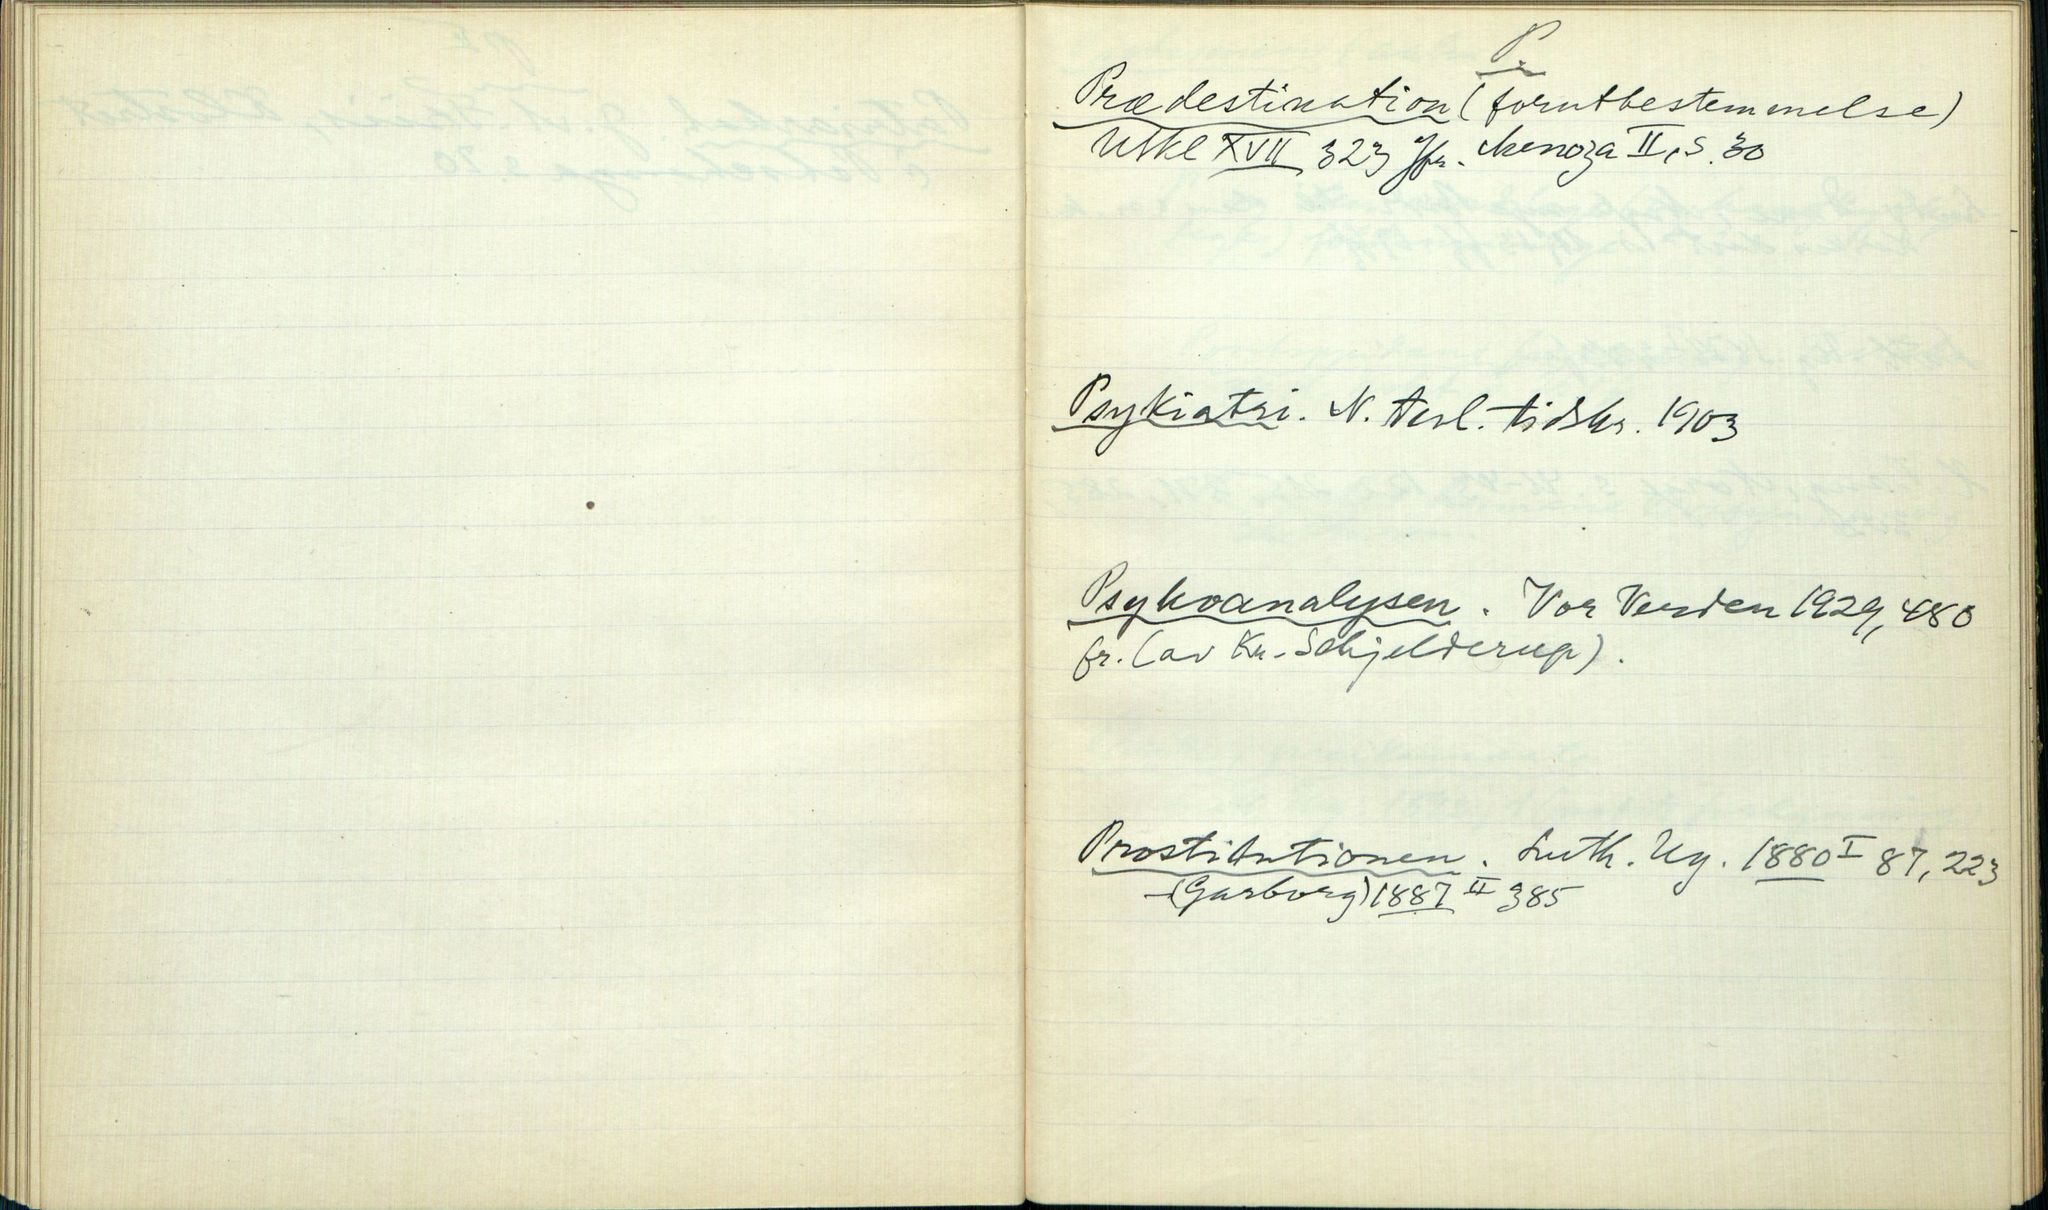 P.
Prædestination (forutbestemmelse)
Utkl XVII 323 jfr. Menoza II, s. 30
Psykiatri. N. teol. tidskr. 1903
Psykoanalysen. Vor Verden 1929, 480
fr. (av Kr. Schjelderup).
Prostitutionen. Luth. Ug. 1880 I 87, 223
(Garborg) 1887 II 385